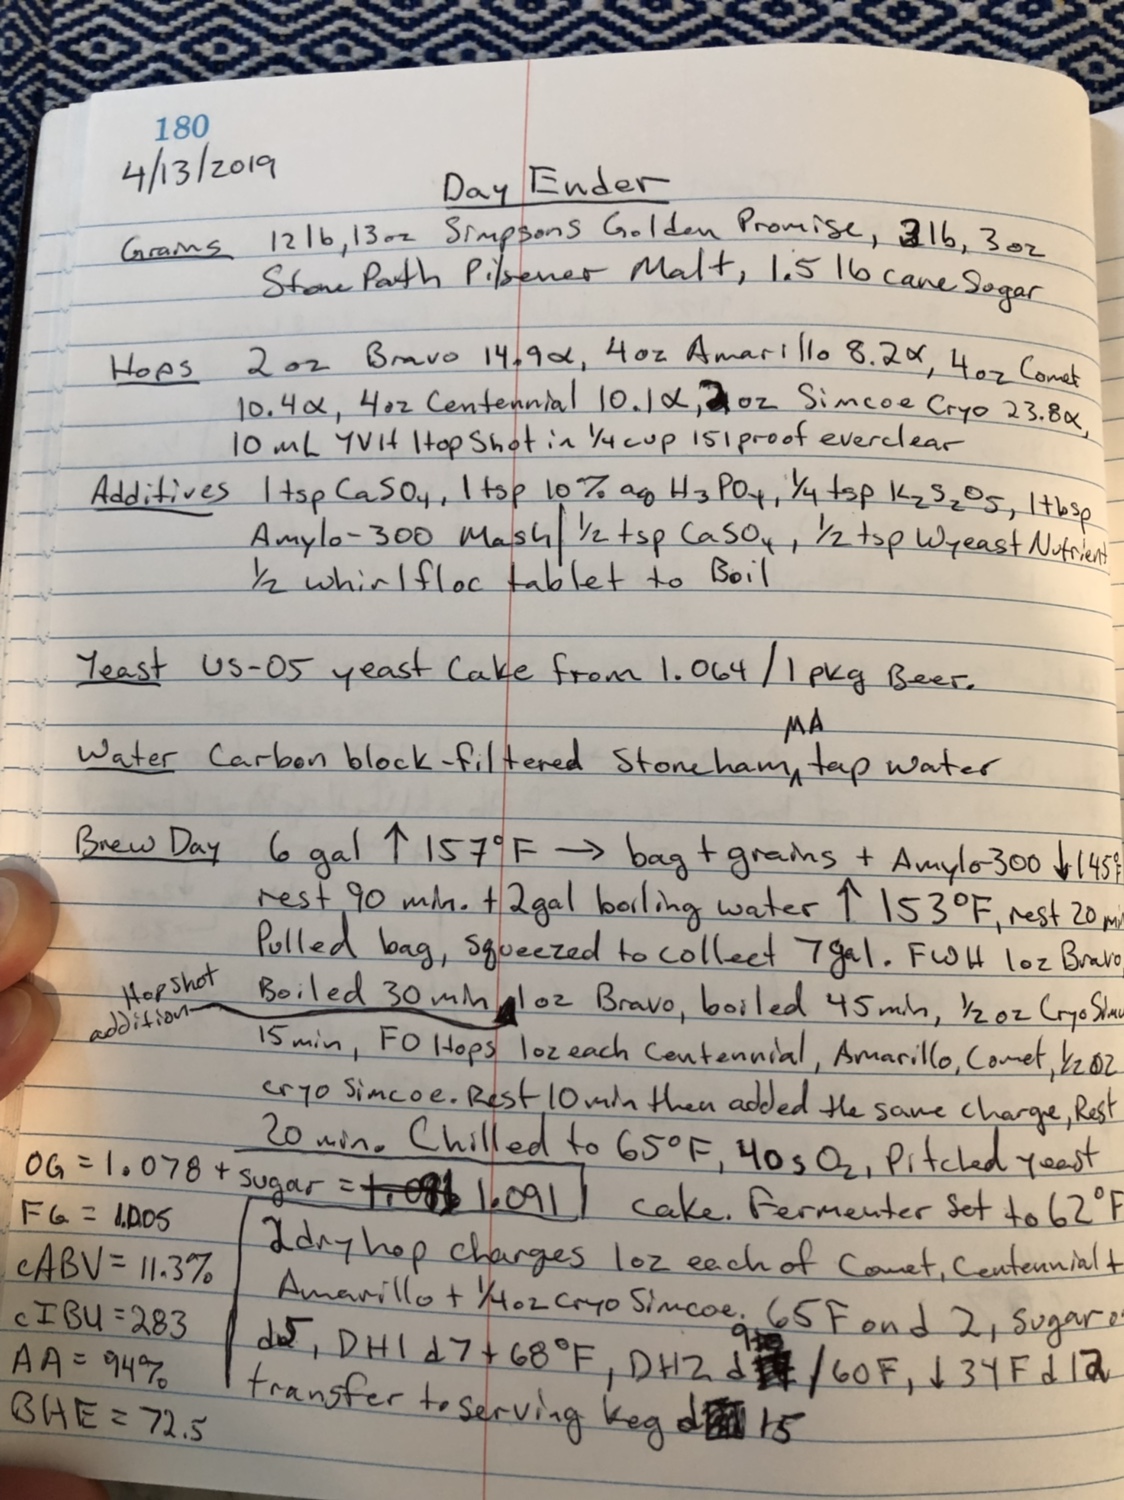 180
4/13/2019
Day Ender
Grains 12 lb, 13 oz Simpsons Golden Promise, 2 lb, 3 oz
Stone Path Pilsener Malt, 1.5 lb cane Sugar
Hops 2 oz Bravo 14.9α, 4oz Amarillo 8.2α, 4oz Comet
10.4α, 4oz Centennial 10.1α, 2oz Simcoe Cryo 23.8α,
10 mL YVH HopShot in 1/4 cup 151 proof everclear
Additives 1 tsp CaSO4, 1 tsp 10% aq H3PO4, 1/4 tsp K2S2O5, 1 tbsp
Amylo-300 Mash / 1/2 tsp CaSO4, 1/2 tsp Wyeast Nutrient
1/2 whirlfloc tablet to Boil
Yeast US-05 yeast Cake from 1.064 / 1 pkg Beer.
MA
Water Carbon block-filtered Stoneham, tap water
Brew Day 6 gal ↑ 157°F → bag + grains + Amylo-300 ↓ 145°F
rest 90 min. + 2gal boiling water ↑ 153°F, rest 20 min
Pulled bag, squeezed to collect 7gal. FWH 1oz Bravo,
Hopshot addition
Boiled 30 min, 1oz Bravo, boiled 45 min, 1/2 oz Cryo
15 min, FO Hops 1oz each Centennial, Amarillo, Comet, 1/2 oz
cryo Simcoe. Rest 10 min then added the same charge, Rest
20 min. Chilled to 65°F, 40s O2, Pitched yeast
OG = 1.078 + sugar = 1.091 cake. Fermenter set to 62°F
FG = 1.005
2 dry hop charges 1oz each of Comet, Centennial +
cABV = 11.3%
Amarillo + 1/4 oz cryo Simcoe. 65F on d 2, sugar
cIBU = 283
d5, DH1 d7 + 68°F, DH2 d 9 / 60F, ↓ 34F d12
AA = 94%
transfer to serving keg d 15
BHE = 72.5